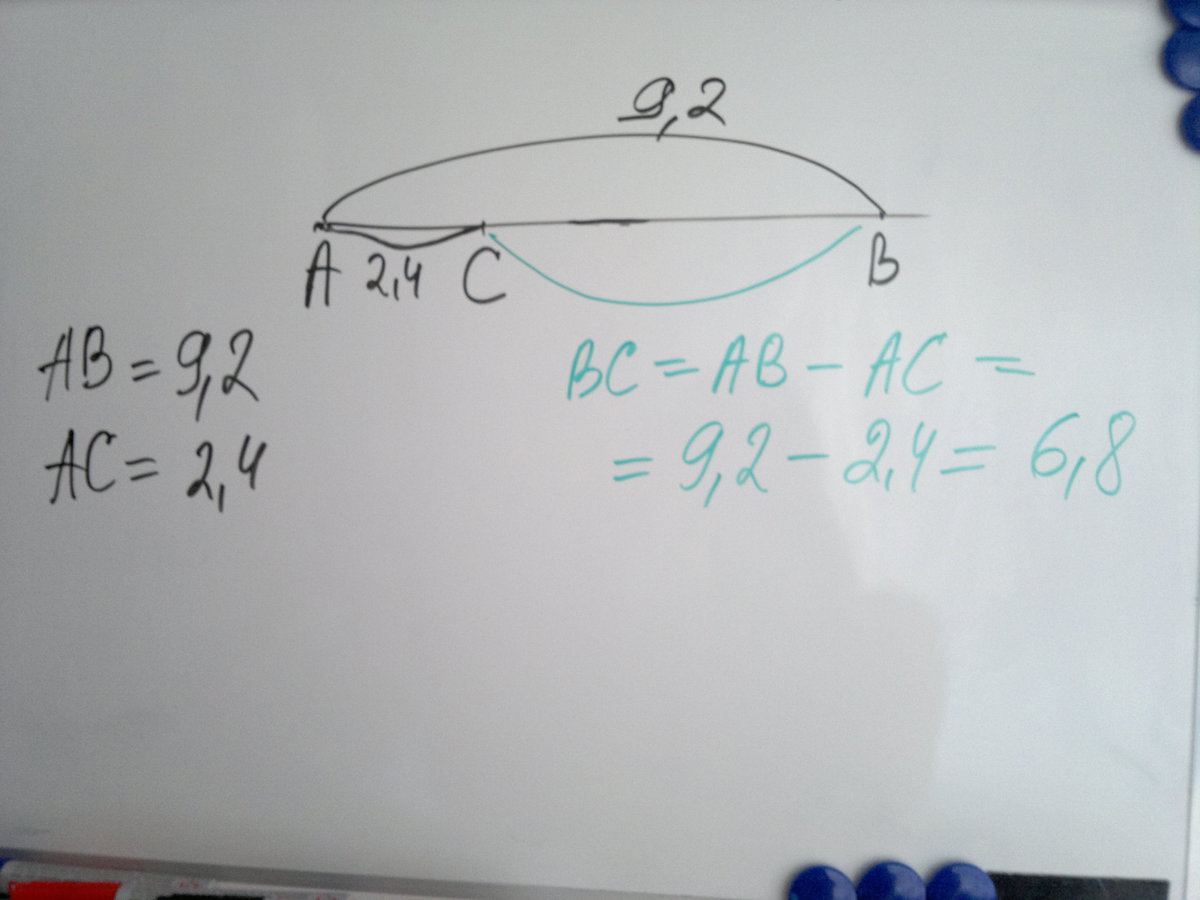 9,2
A 2,4 C B
AB = 9,2
AC = 2,4
BC = AB - AC =
= 9,2 - 2,4 = 6,8